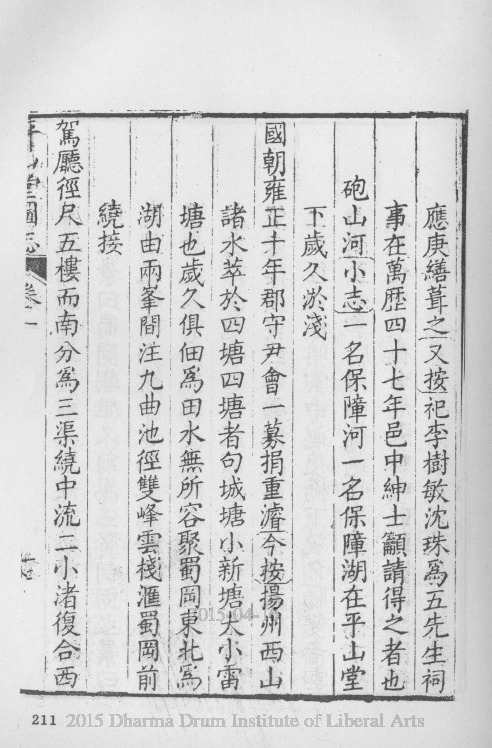 應庚繕葺之又按祀李樹敏沈珠爲五先生祠
事在萬歷四十七年邑中紳士籲請得之者也
砲山河小志一名保障河一名保障湖在平山堂
下歲久淤淺
國朝雍正十年郡守尹會一募捐重濬今按揚州西山
諸水萃於四塘四塘者句城塘小新塘大小雷
塘也歲久俱佃爲田水無所容聚蜀岡東北爲
湖曲兩峯間注九曲池徑雙峰雲棧滙蜀岡前
繞接
駕廳徑尺五樓而南分爲三渠繞中流二小渚復合西
平山堂圖志 卷一
211 2015 Dharma Drum Institute of Liberal Arts